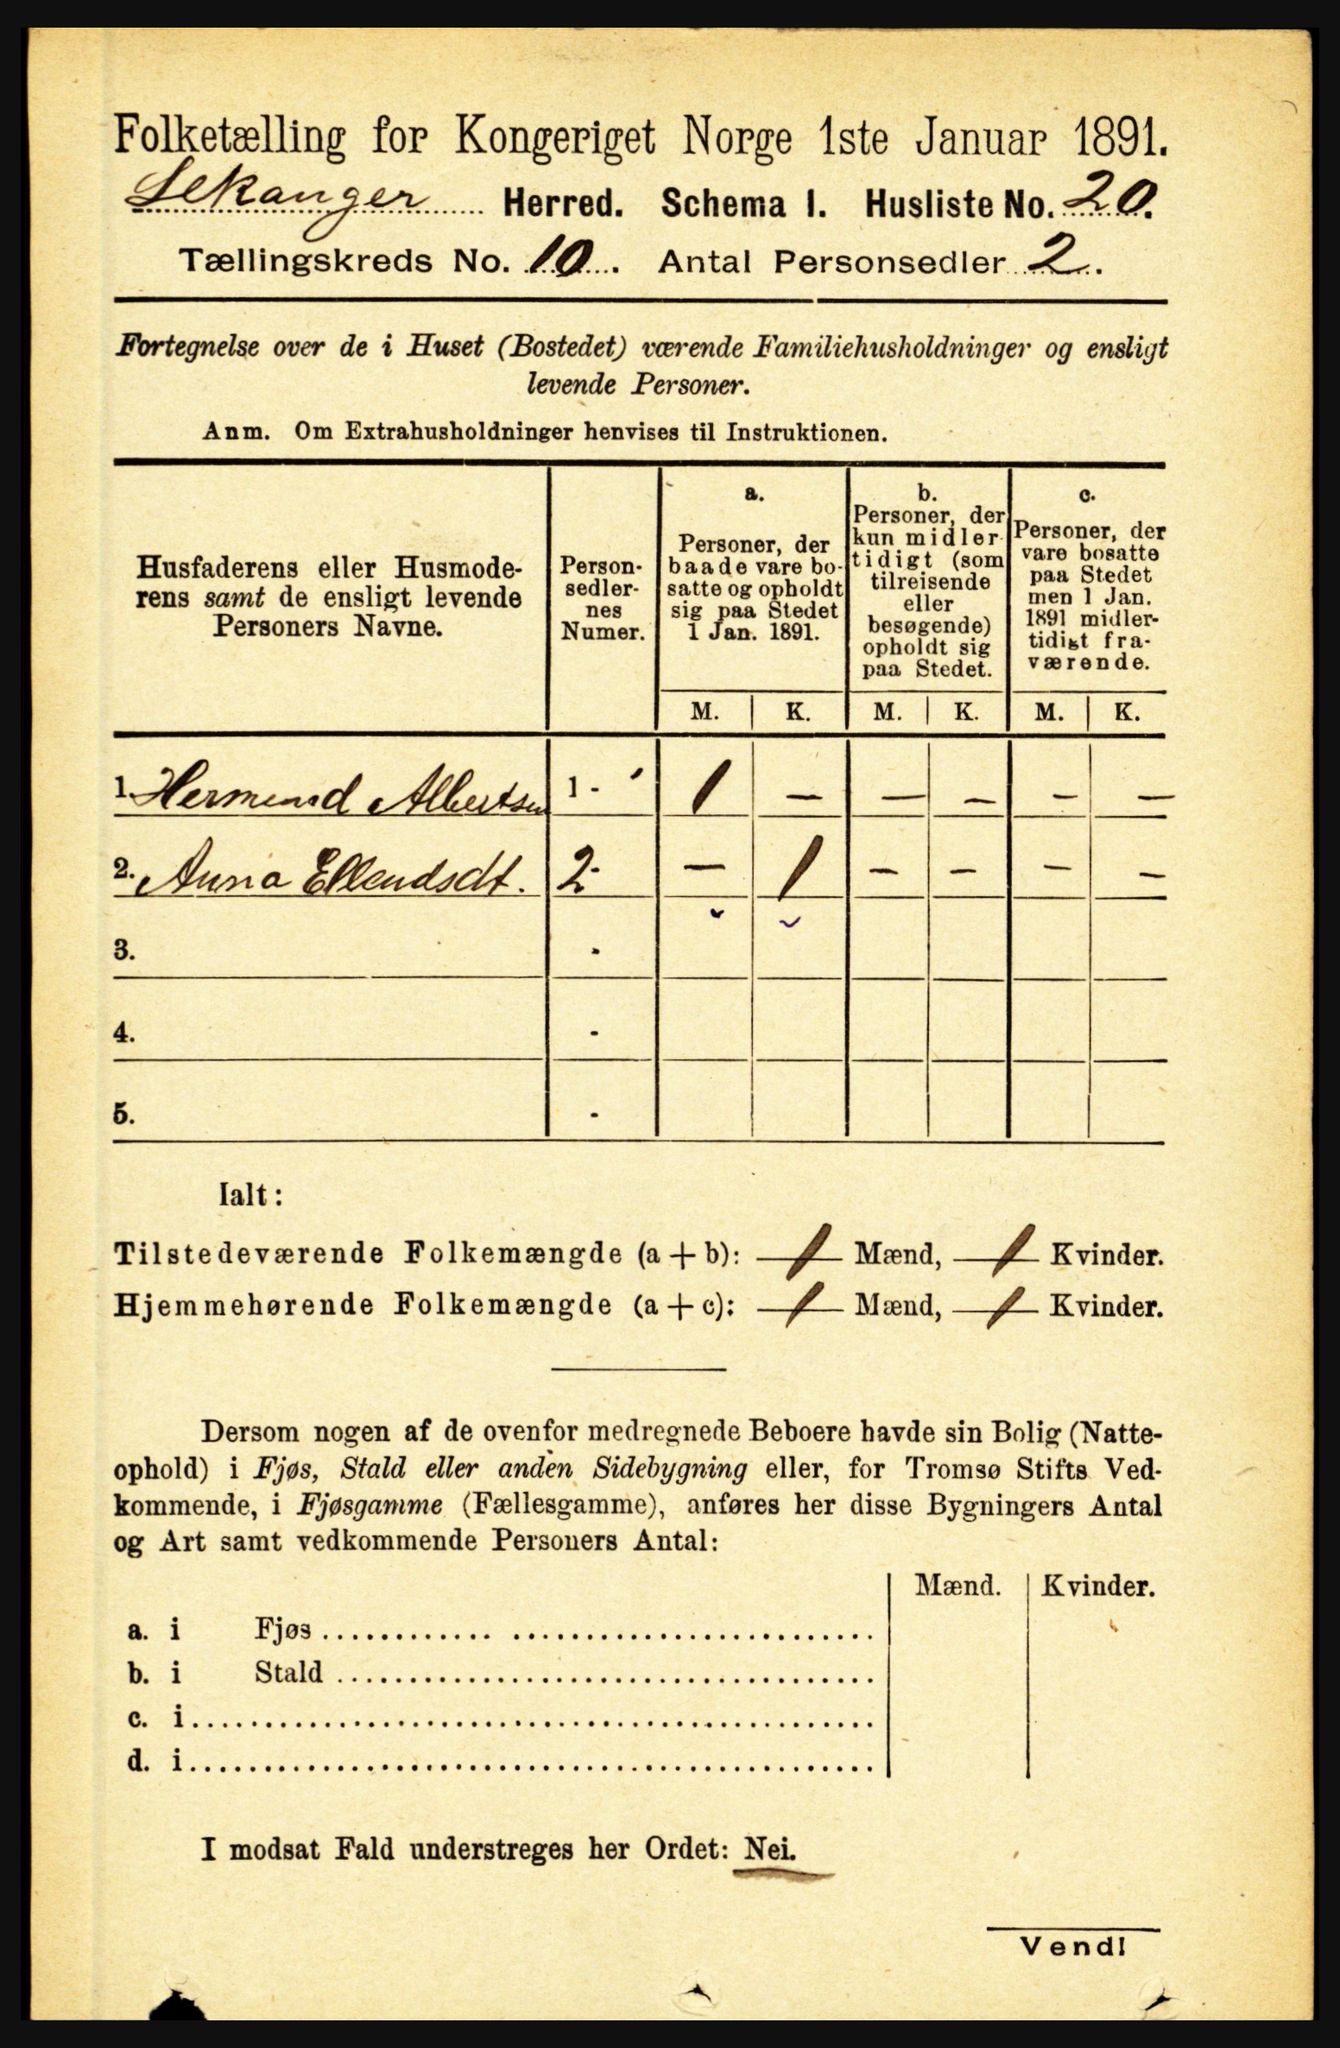 Folketælling for Kongeriget Norge 1ste Januar 1891.
Lekanger Herred. Schema I. Husliste No. 20.
Tællingskreds No. 10. Antal Personsedler 2.
Fortegnelse over de i Huset (Bostedet) værende Familiehusholdninger og ensligt
levende Personer.
Anm. Om Extrahusholdninger henvises til Instruktionen.
Husfaderens eller Husmode-
rens samt de ensligt levende
Personers Navne.
Person-
sedler-
nes
Numer.
a.
Personer, der
baade vare bo-
satte og opholdt
sig paa Stedet
1 Jan. 1891.
b.
Personer, der
kun midler-
tidigt (som
tilreisende
eller
besøgende)
opholdt sig
paa Stedet.
c.
Personer, der
vare bosatte
paa Stedet
men 1 Jan.
1891 midler-
tidigt fra-
værende.
M. K. M. K. M. K.
1. Hermund Albertsen 1 - 1 — — — — —
2. Anna Ellendsdt. 2 - — 1 — — — —
3. -
4. -
5. -
Ialt:
Tilstedeværende Folkemængde (a + b): 1 Mænd, 1 Kvinder.
Hjemmehørende Folkemængde (a + c): 1 Mænd, 1 Kvinder.
Dersom nogen af de ovenfor medregnede Beboere havde sin Bolig (Natte-
ophold) i Fjøs, Stald eller anden Sidebygning eller, for Tromsø Stifts Ved-
kommende, i Fjøsgamme (Fællesgamme), anføres her disse Bygningers Antal
og Art samt vedkommende Personers Antal:
Mænd. Kvinder.
a. i Fjøs
b. i Stald
c. i
d. i
I modsat Fald understreges her Ordet: Nei.
Vend!